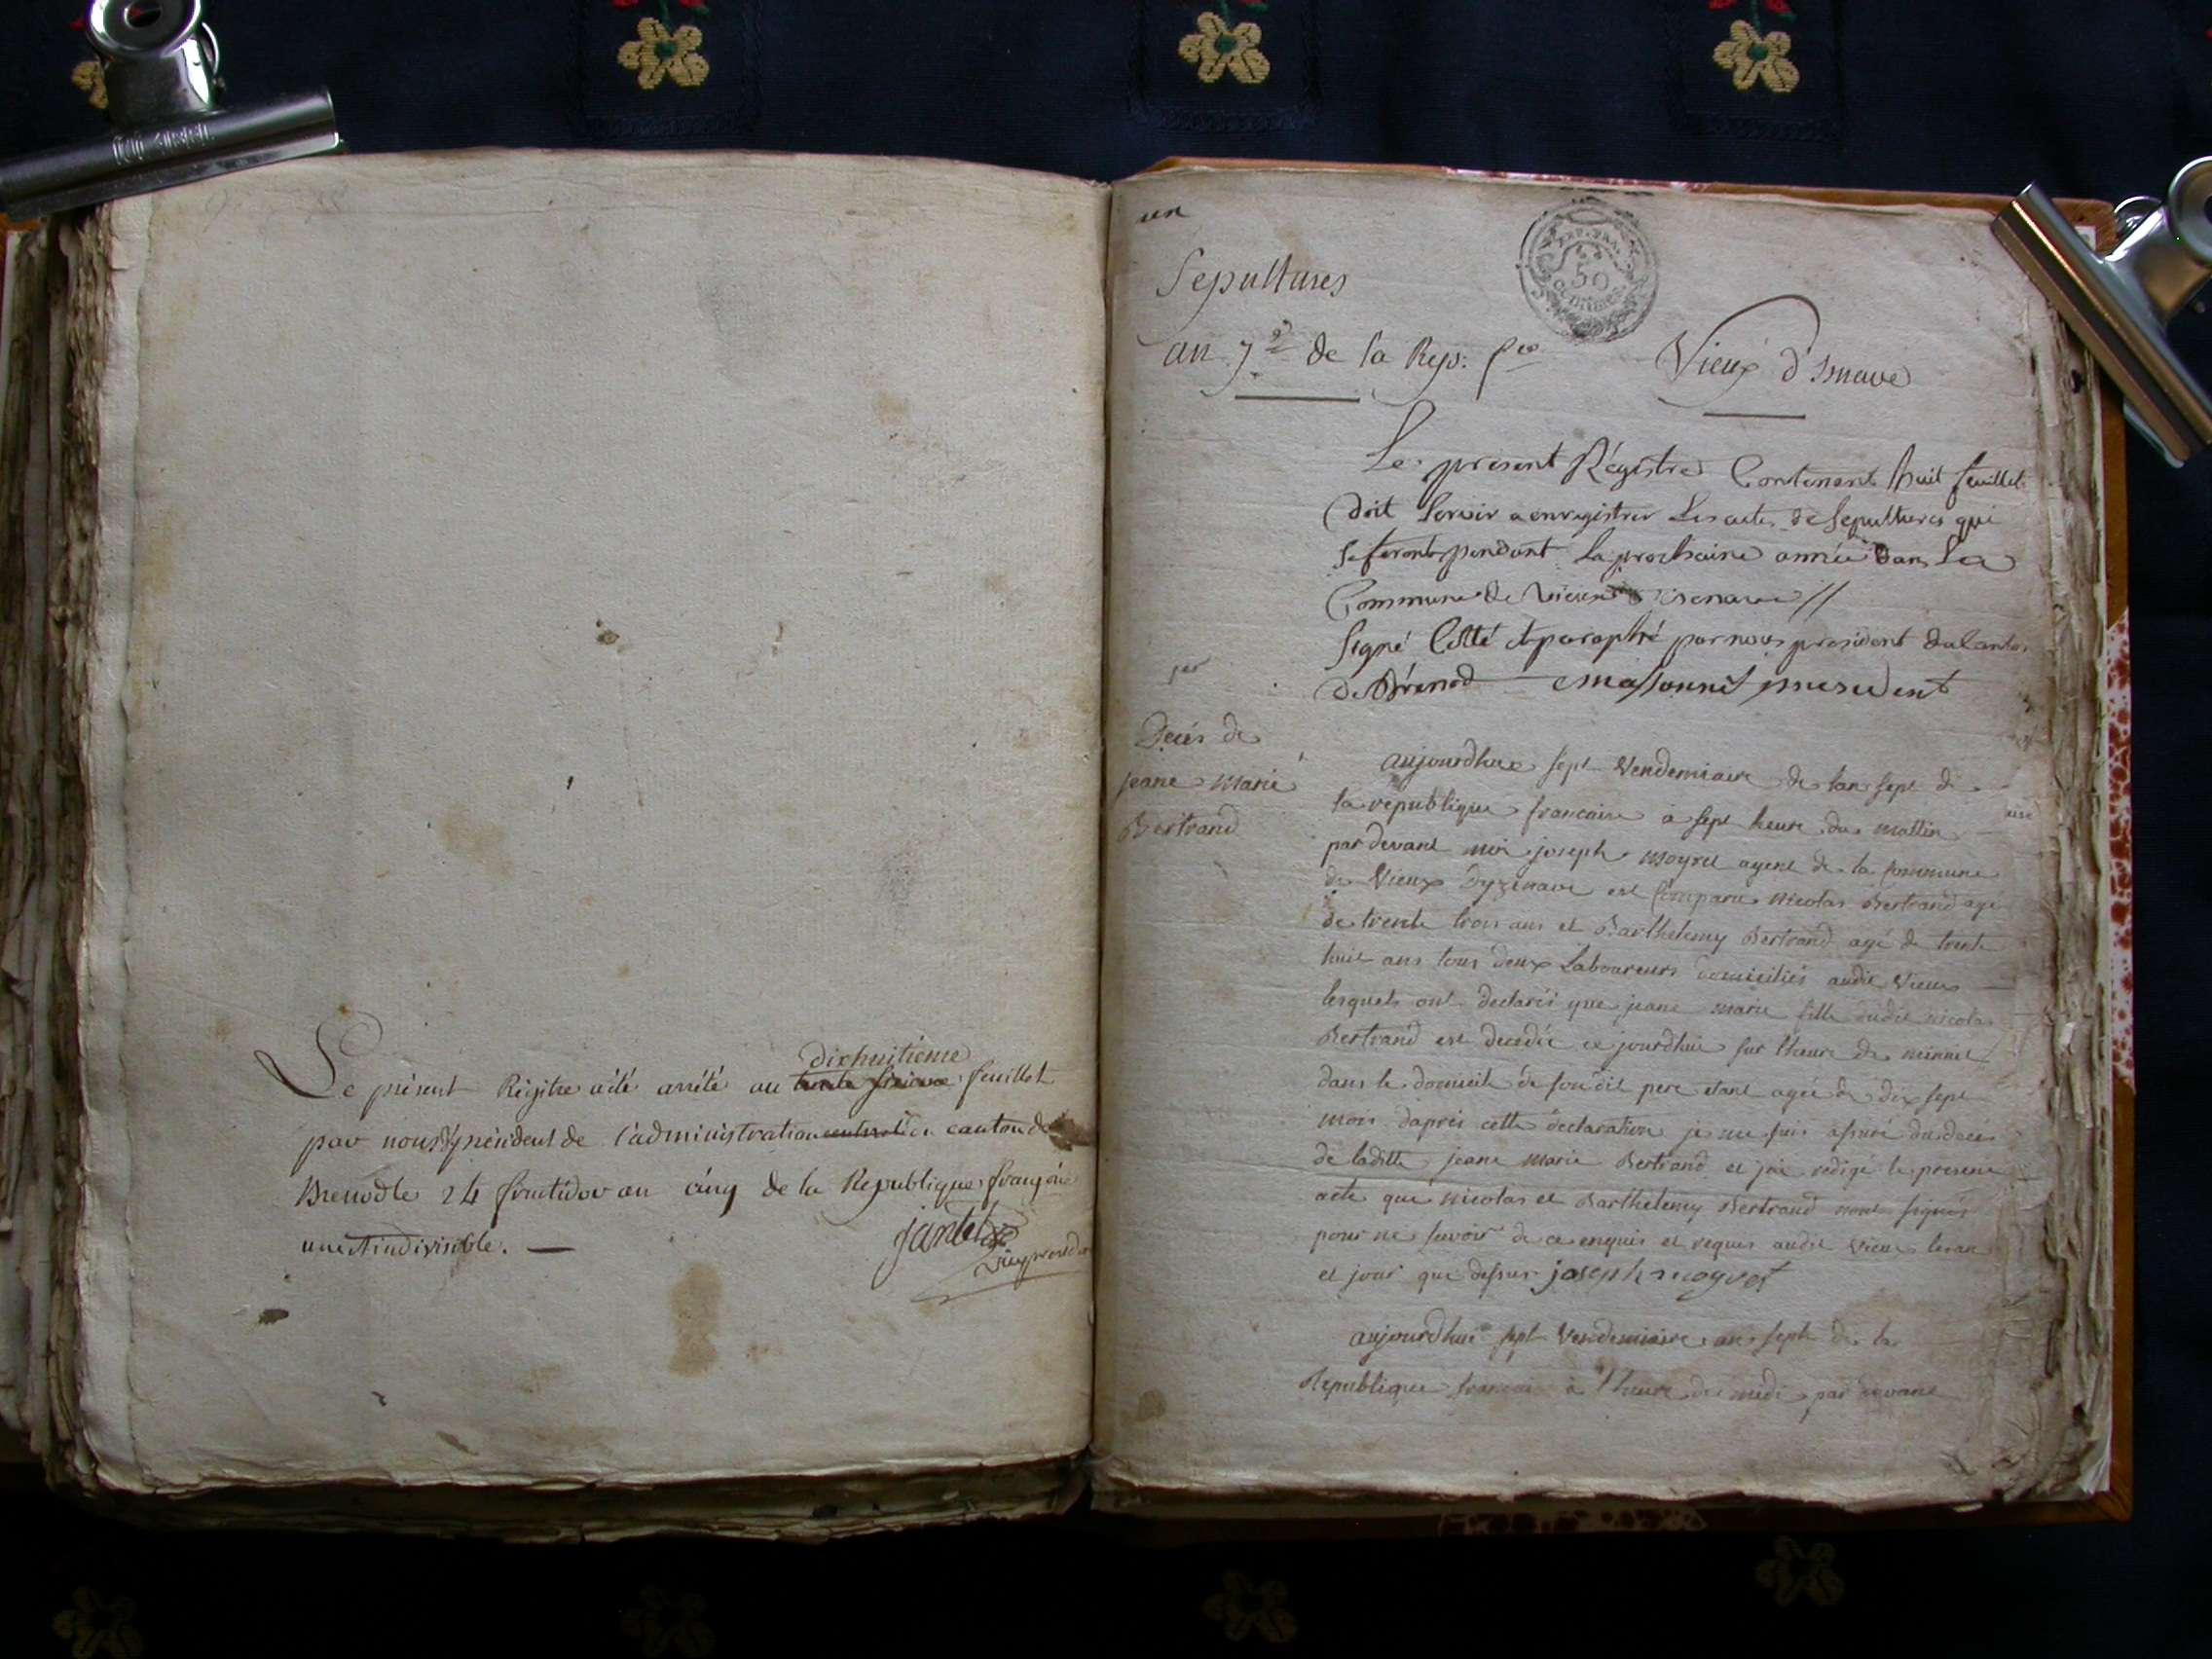 Le présent Régitre a été arrêté au trente sixieme dixhuitieme feuillet
par nous vpresident de l'administration centrale du canton de
Brenod le 24 fructidor an cinq de la Republique françoise
une et indivisible. —
jantet
vicepresident
un
Sepultures
REP. FRA.
50
centimes
an 7e de la Rep. fse
Vieux d'Isnave
Le present Régistre Contenant huit feuillet
doit servir a enregistrer Les actes de sepultures qui
se feront pendant la prochaine année dans La
Commune de vieux d'isenave //
Signé Cotté et paraphé par nous president du Canton
de Brénod Massonnet president
per
Decés de
jeane Marie
Bertrand
aujourdhui sept vendemiaire de lan sept de
la republique francaise à sept heure du mattin
par devant moi joseph moyret agent de la Commune
de Vieux dyzenave est Comparu nicolas Bertrand agé
de trente trois ans et Barthelemy Bertrand agé de trente
huit ans tous deux Laboureurs domiciliés audit Vieux
lesquels ont declarés que jeane marie fille dudit nicolas
Bertrand est decedée ce jourdhui sur lheure de minuit
dans le domicile de son dit pere etant agée de dix sept
mois daprés cette declaration je me suis assuré du decés
de laditte jeane marie Bertrand et jai redigé le present
acte que nicolas et Barthelemy Bertrand nont signés
pour ne savoir de ce enquis et requis audit Vieux les an
et jour que dessus joseph moyret
aujourdhui sept Vendemiaire an sept de la
Republique francaise à l'heure de midi par devant